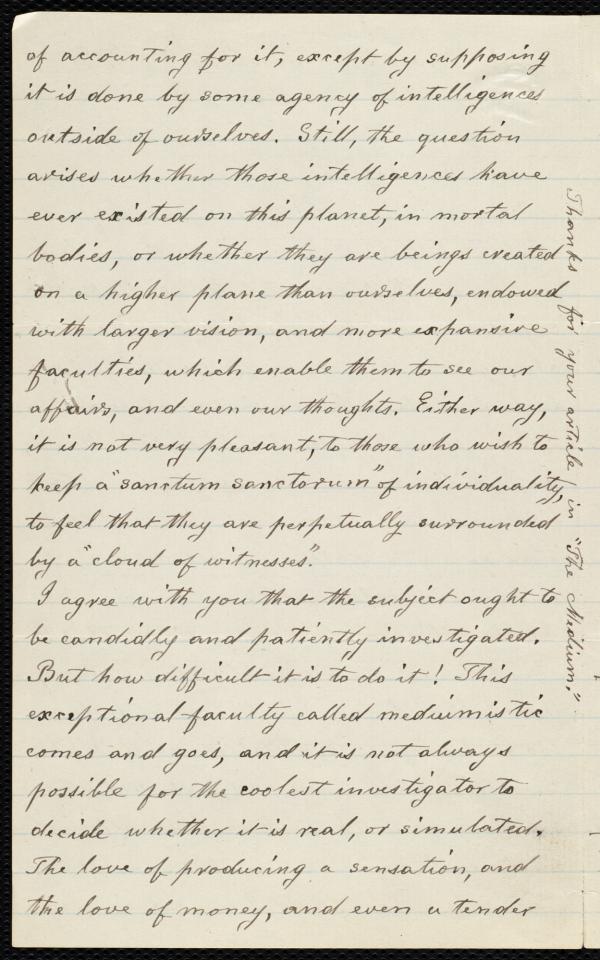 of accounting for it, except by supposing
it is done by some agency of intelligences
outside of ourselves. Still, the question
arises whether those intelligences have
ever existed on this planet, in mortal
bodies, or whether they are beings created
on a higher plane than ourselves, endowed
with larger vision, and more expansive
faculties, which enable them to see our
affairs, and even our thoughts. Either way,
it is not very pleasant, to those who wish to
keep a "sanctum sanctorum" of individuality,
to feel that they are perpetually surrounded
by a "cloud of witnesses".
I agree with you that the subject ought to
be candidly and patiently investigated.
But how difficult it is to do it! This
exceptional faculty called mediumistic
comes and goes, and it is not always
possible for the coolest investigator to
decide whether it is real, or simulated.
The love of producing a sensation, and
the love of money, and even a tender
Thanks for your article in "The Medium."